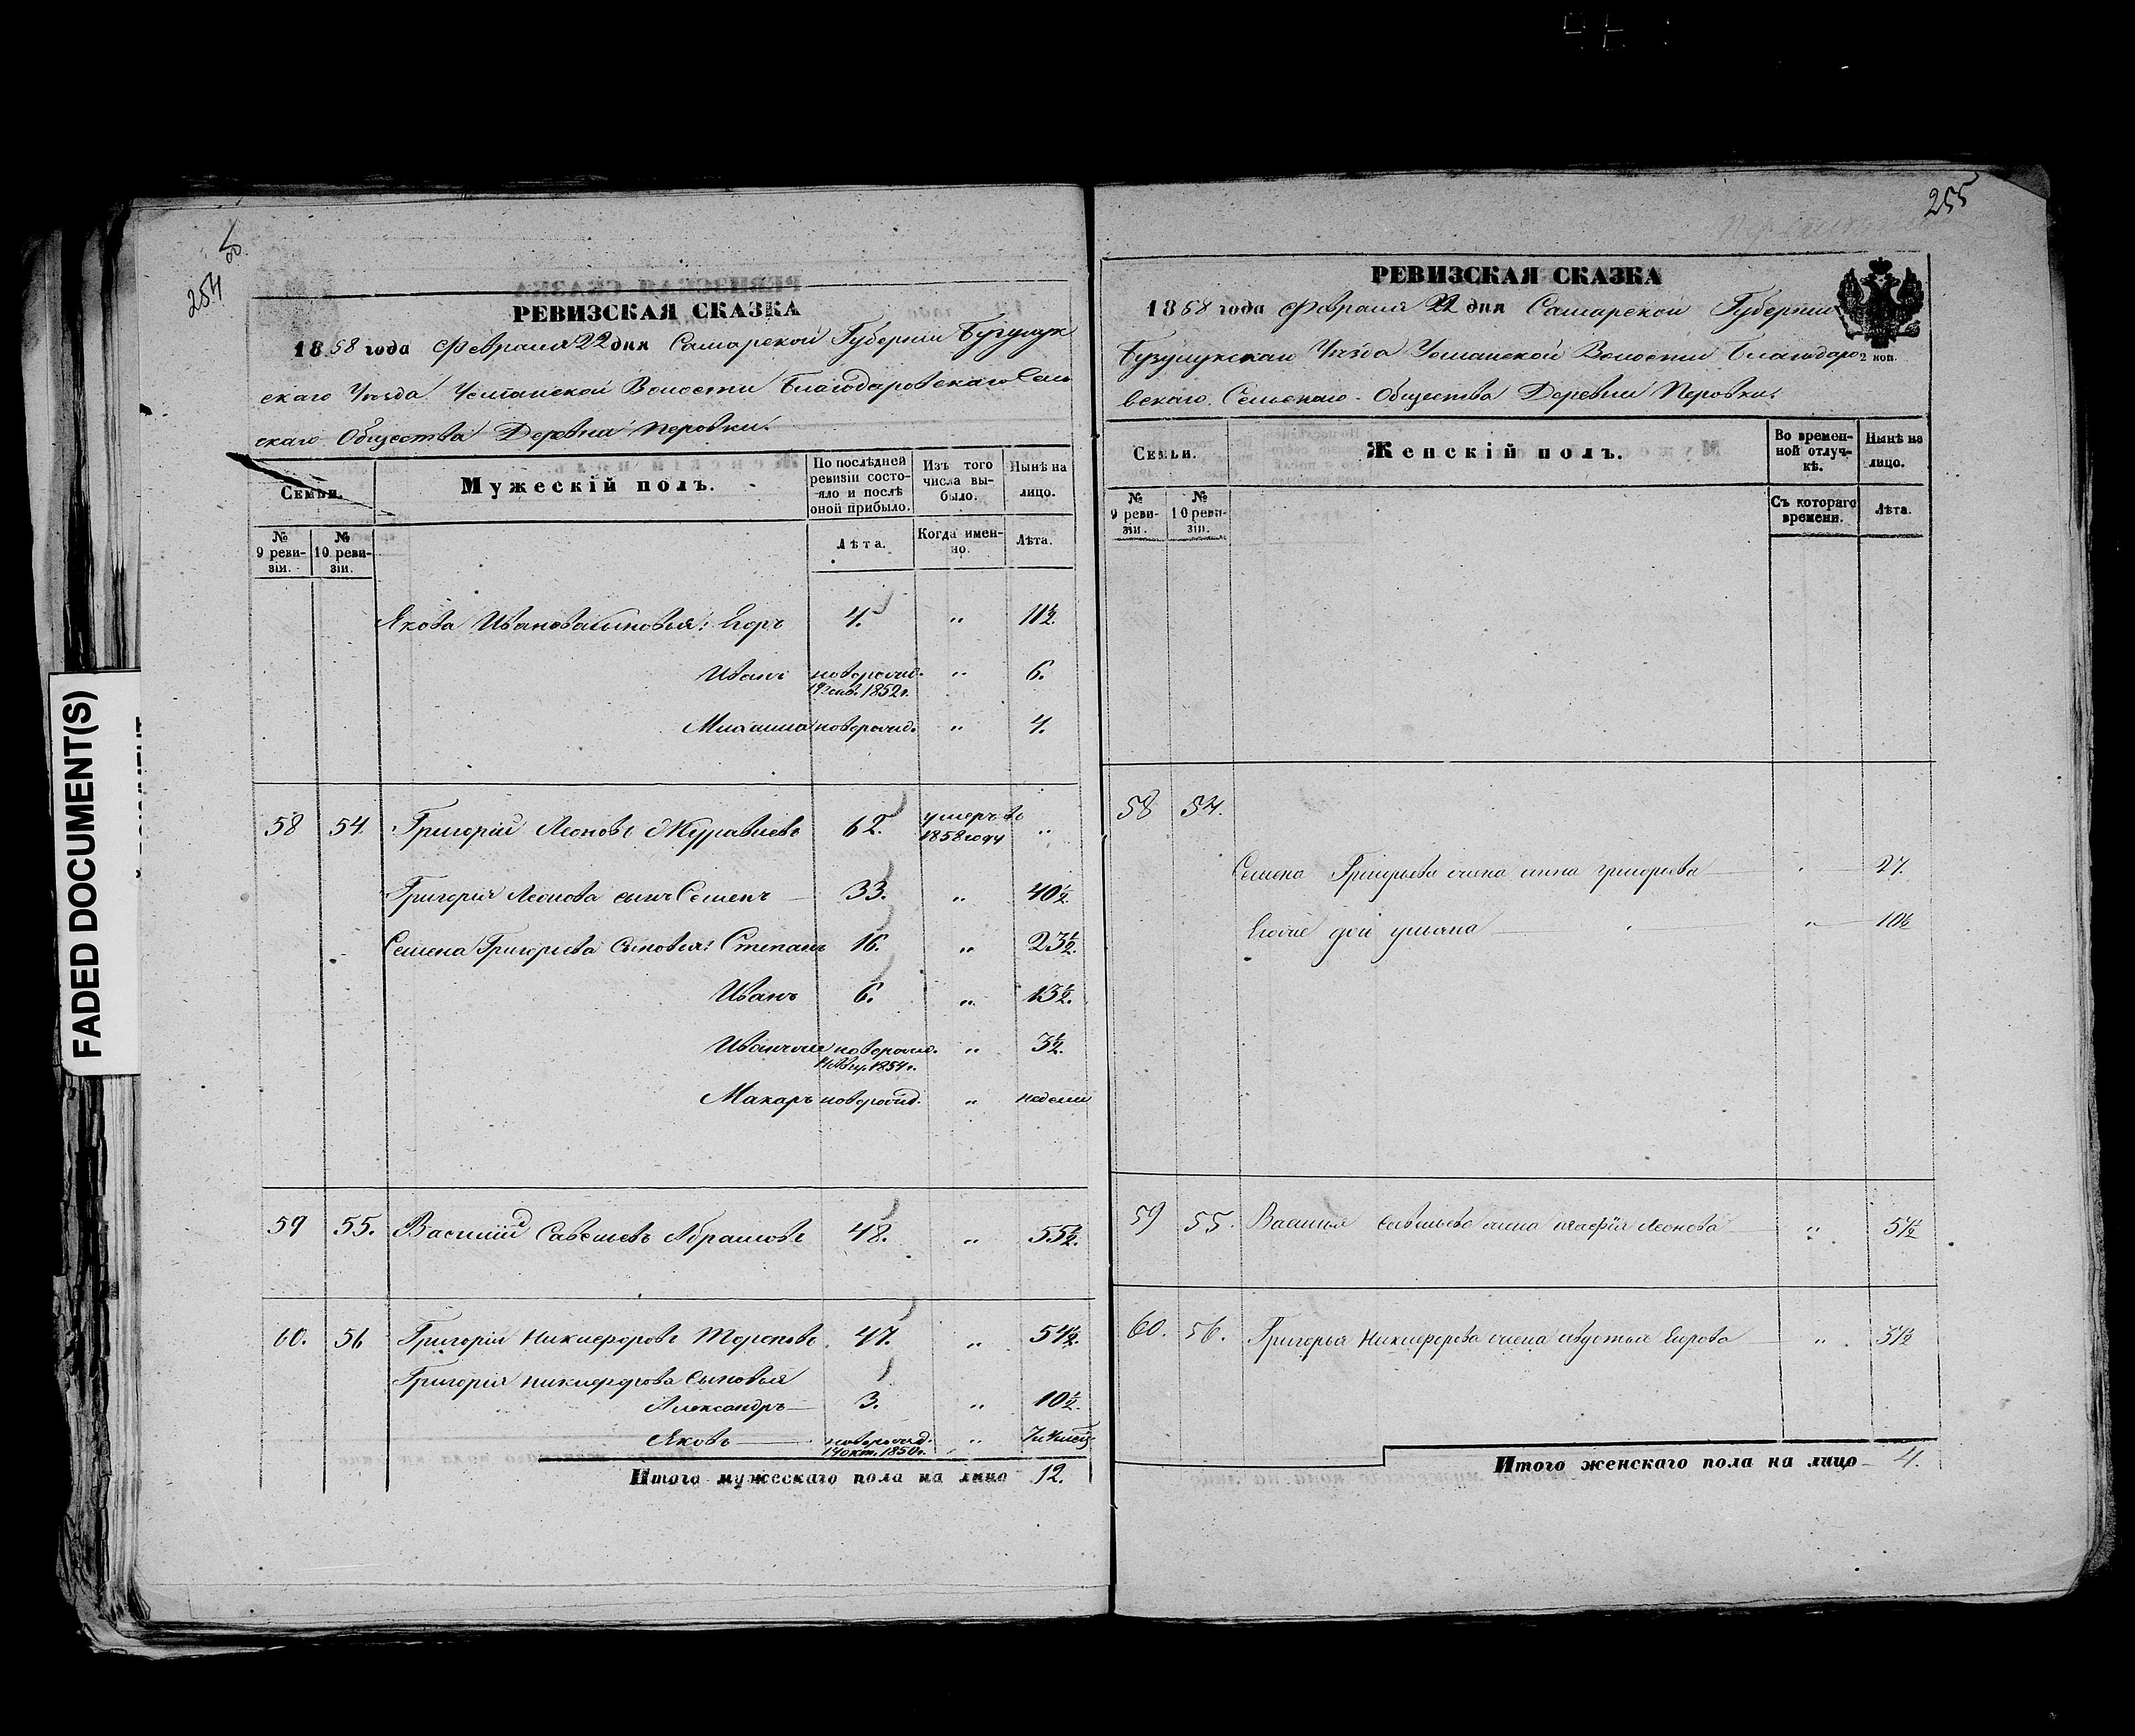 254
255
FADED DOCUMENT(S)
РЕВИЗСКАЯ СКАЗКА
1858 года Февраля 22 дня Самарской Губерніи Бузулук
скаго Уѣзда Усманской Волости Благодаровскаго Сель
скаго Общества Деревни Перовки.
Семьи.
Мужескій полъ.
По послѣдней ревизіи состояло и послѣ оной прибыло.
Изъ того числа выбыло.
Нынѣ на лицо.
№ 9 ревизіи.
№ 10 ревизіи.
Лѣта.
Когда именно.
Лѣта.
Якова Иванова сыновья: Егоръ 4. " 11½.
Иванъ новорожд. " 6.
1852 г.
Михаила новорожд. " 4.
58 54. Григорій Леоновъ Журавлевъ 62. умеръ въ "
1858 году
Григорія Леонова сынъ Семенъ 33. " 40½
Семена Григорьева Сыновья: Степанъ 16. " 23½.
Иванъ 6. " 13½.
новорожд. " 3½.
1854 г.
Макаръ новорожд. " недели
59 55. Василий Савельевъ Абрамовъ 48. " 55½.
60. 56 Григорій Никифоровъ Тороповъ 47. " 54½.
Григорія Никифорова Сыновья
Александръ 3. " 10½.
Яковъ новорожд. "
14 окт. 1850 г.
Итого мужескаго пола на лицо 12.
РЕВИЗСКАЯ СКАЗКА
1858 года Февраля 22 дня Самарской Губерніи
Бузулукскаго Уѣзда Усманской Волости Благодаро
2 коп.
вскаго Сельскаго Общества Деревни Перовки.
Семьи.
Женскій полъ.
Во временной отлучкѣ.
Нынѣ на лицо.
№ 9 ревизіи.
№ 10 ревизіи.
Съ котораго времени.
Лѣта.
58 54.
Семена Григорьева жена Анна Григорьева " 27.
Егоже дочь Ульяна " 10½
59 55. Василья Савельева жена Леонова " 54½
60. 56. Григорья Никифорова жена Егорова " 51½
Итого женскаго пола на лицо 4.